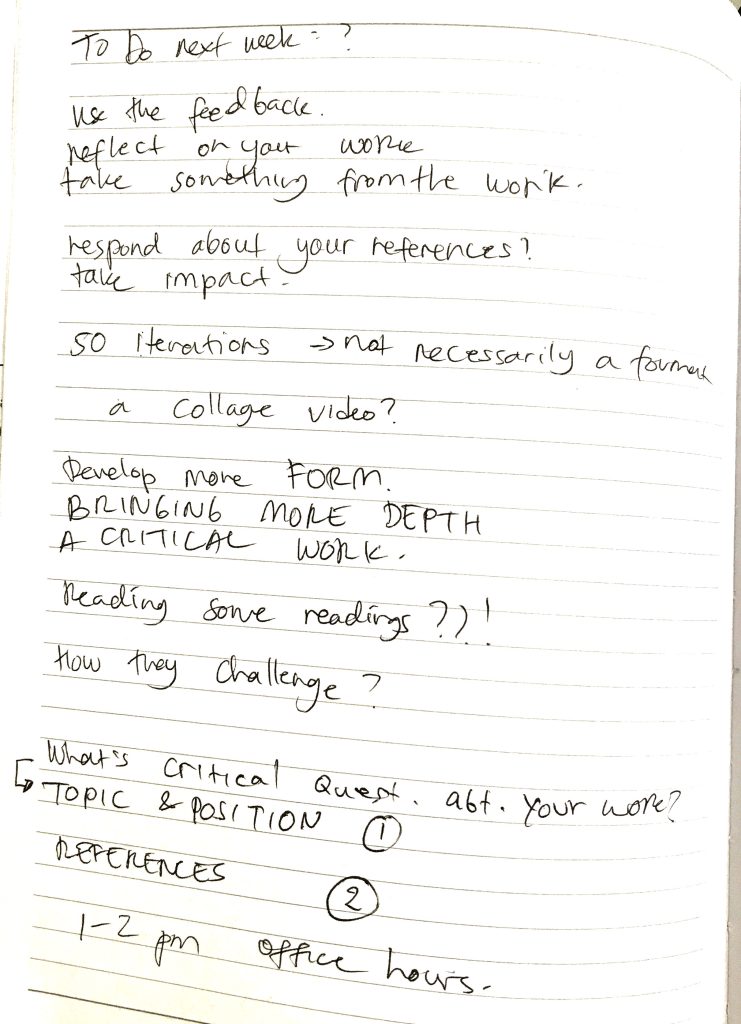 To Do next week = ?
use the feedback.
reflect on your work
take something from the work.
respond about your references?
take impact.
50 iterations → not necessarily a format
a collage video?
Develop more FORM.
BRINGING MORE DEPTH
A CRITICAL WORK.
Reading some readings ??!
How they challenge ?
What's critical Quest. abt. your work?
↳ TOPIC & POSITION ①
REFERENCES ②
1-2 pm office hours.